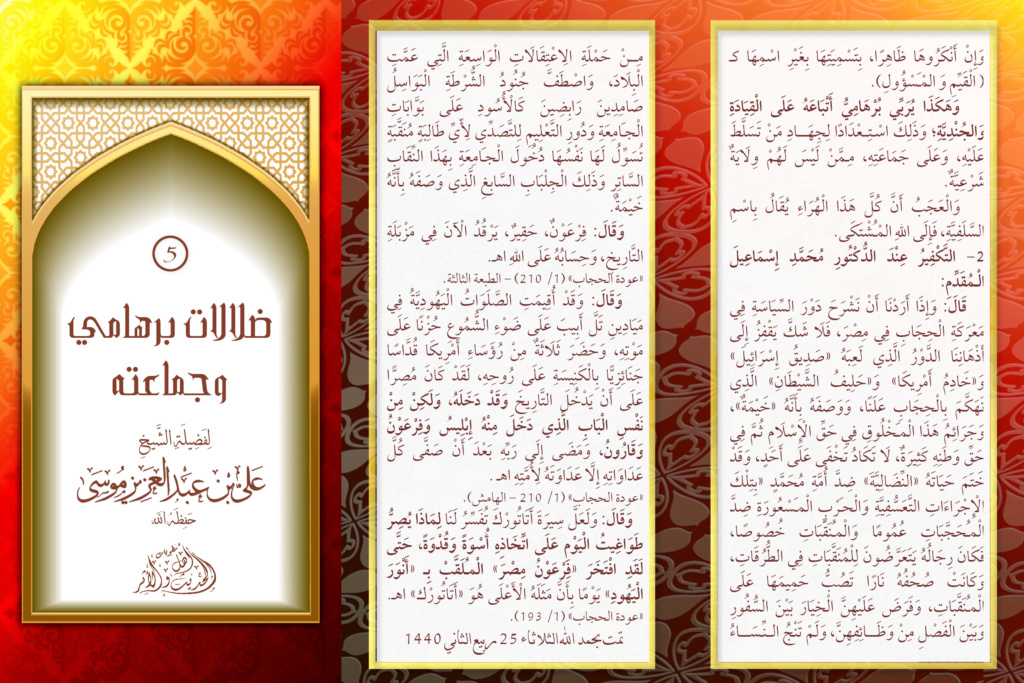 5
ضلالات برهامي
وجماعته
لِفَضِيلَةِ الشَّيْخِ
عَلِيِّ بْنِ عَبْدِ الْعَزِيزِ مُوسَى
حَفِظَهُ الله
وَإِنْ أَنْكَرُوهَا ظَاهِرًا، بِتَسْمِيَتِهَا بِغَيْرِ اسْمِهَا كـ
(الْقَيِّمِ وَ الْمَسْؤُولِ).
وَهَكَذَا يُرَبِّي بُرْهَامِيُّ أَتْبَاعَهُ عَلَى الْقِيَادَةِ
وَالْجُنْدِيَّةِ؛ وَذَلِكَ اسْتِعْدَادًا لِجِهَادِ مَنْ تَسَلَّطَ
عَلَيْهِ، وَعَلَى جَمَاعَتِهِ، مِمَّنْ لَيْسَ لَهُمْ وِلَايَةٌ
شَرْعِيَّةٌ.
وَالْعَجَبُ أَنَّ كُلَّ هَذَا الْهُرَاءِ يُقَالُ بِاسْمِ
السَّلَفِيَّةِ، فَإِلَى اللهِ الْمُشْتَكَى.
2- التَّكْفِيرُ عِنْدَ الدُّكْتُورِ مُحَمَّدِ إِسْمَاعِيلَ
الْمُقَدَّمِ:
قَالَ: وَإِذَا أَرَدْنَا أَنْ نَشْرَحَ دَوْرَ السِّيَاسَةِ فِي
مَعْرَكَةِ الْحِجَابِ فِي مِصْرَ، فَلَا شَكَّ يَقْفِزُ إِلَى
أَذْهَانِنَا الدَّوْرُ الَّذِي لَعِبَهُ «صَدِيقُ إِسْرَائِيلَ»
وَ«خَادِمُ أَمْرِيكَا» وَ«حَلِيفُ الشَّيْطَانِ» الَّذِي
تَهَكَّمَ بِالْحِجَابِ عَلَنًا، وَوَصَفَهُ بِأَنَّهُ «خَيْمَةٌ»،
وَجَرَائِمُ هَذَا الْمَخْلُوقِ فِي حَقِّ الْإِسْلَامِ ثُمَّ فِي
حَقِّ وَطَنِهِ كَثِيرَةٌ، لَا تَكَادُ تَخْفَى عَلَى أَحَدٍ، وَقَدْ
خَتَمَ حَيَاتَهُ «النِّضَالِيَّةَ» ضِدَّ أُمَّةِ مُحَمَّدٍ «بِتِلْكَ
الْإِجْرَاءَاتِ التَّعَسُّفِيَّةِ وَالْحَرْبِ الْمَسْعُورَةِ ضِدَّ
الْمُحَجَّبَاتِ عُمُومًا وَالْمُنَقَّبَاتِ خُصُوصًا،
فَكَانَ رِجَالُهُ يَتَعَرَّضُونَ لِلْمُنَقَّبَاتِ فِي الطُّرُقَاتِ،
وَكَانَتْ صُحُفُهُ نَارًا تَصُبُّ حَمِيمَهَا عَلَى
الْمُنَقَّبَاتِ، وَفَرَضَ عَلَيْهِنَّ الْخِيَارَ بَيْنَ السُّفُورِ
وَبَيْنَ الْفَصْلِ مِنْ وَظَائِفِهِنَّ، وَلَمْ تَنْجُ النِّسَاءُ
مِـنْ حَمْلَةِ الِاعْتِقَالَاتِ الْوَاسِعَةِ الَّتِي عَمَّتِ
الْبِلَادَ، وَاصْطَفَّ جُنُودُ الشُّرْطَةِ الْبَوَاسِلُ
صَامِدِينَ رَابِضِينَ كَالْأُسُودِ عَلَى بَوَّابَاتِ
الْجَامِعَةِ وَدُورِ التَّعْلِيمِ لِلتَّصَدِّي لِأَيِّ طَالِبَةٍ مُنَقَّبَةٍ
تُسَوِّلُ لَهَا نَفْسُهَا دُخُولَ الْجَامِعَةِ بِهَذَا النِّقَابِ
السَّاتِرِ وَذَلِكَ الْجِلْبَابِ السَّابِغِ الَّذِي وَصَفَهُ بِأَنَّهُ
خَيْمَةٌ.
وَقَالَ: فِرْعَوْنُ، حَقِيرٌ، يَرْقُدُ الْآنَ فِي مَزْبَلَةِ
التَّارِيخِ، وَحِسَابُهُ عَلَى اللهِ اهـ.
«عودة الحجاب» (1/ 210) – الطبعة الثالثة.
وَقَالَ: وَقَدْ أُقِيمَتِ الصَّلَوَاتُ الْيَهُودِيَّةُ فِي
مَيَادِينِ تَلِّ أَبِيبَ عَلَى ضَوْءِ الشُّمُوعِ حُزْنًا عَلَى
مَوْتِهِ، وَحَضَرَ ثَلَاثَةٌ مِنْ رُؤَسَاءِ أَمْرِيكَا قُدَّاسًا
جَنَائِزِيًّا بِالْكَنِيسَةِ عَلَى رُوحِهِ، لَقَدْ كَانَ مُصِرًّا
عَلَى أَنْ يَدْخُلَ التَّارِيخَ وَقَدْ دَخَلَهُ، وَلَكِنْ مِنْ
نَفْسِ الْبَابِ الَّذِي دَخَلَ مِنْهُ إِبْلِيسُ وَفِرْعَوْنُ
وَقَارُونُ، وَمَضَى إِلَى رَبِّهِ بَعْدَ أَنْ صَفَّى كُلَّ
عَدَاوَاتِهِ إِلَّا عَدَاوَتَهُ لِأُمَّتِهِ اهـ.
«عودة الحجاب» (1/ 210 – الهامش).
وَقَالَ: وَلَعَلَّ سِيرَةَ أَتَاتُورْكَ تُفَسِّرُ لَنَا لِمَاذَا يُصِرُّ
طَوَاغِيتُ الْيَوْمِ عَلَى اتِّخَاذِهِ أُسْوَةً وَقُدْوَةً، حَتَّى
لَقَدِ افْتَخَرَ «فِرْعَوْنُ مِصْرَ» الْمُلَقَّبُ بِـ «أَنْوَرَ
الْيَهُودِ» يَوْمًا بِأَنَّ مَثَلَهُ الْأَعْلَى هُوَ «أَتَاتُورْك» اهـ.
«عودة الحجاب» (1/ 193).
تمت بحمد الله الثلاثاء 25 ربيع الثاني 1440